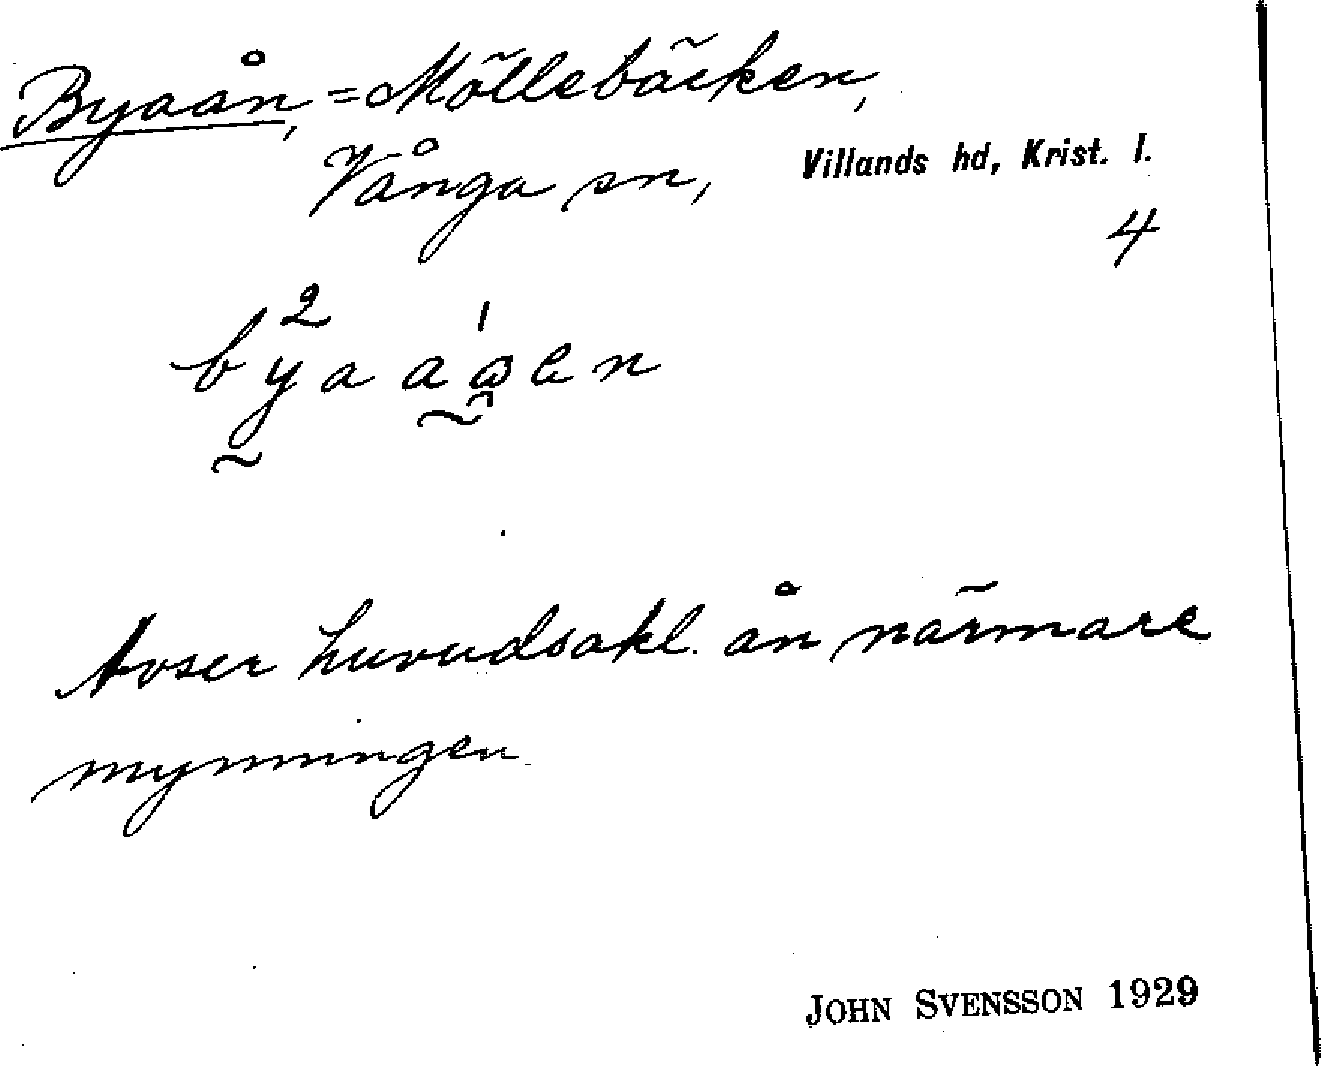 Byaån, = Möllebäcken,
Vånga sn, Villands hd, Krist. l.
4
Avser huvudsakl. ån närmare
mynningen
JOHN SVENSSON 1929